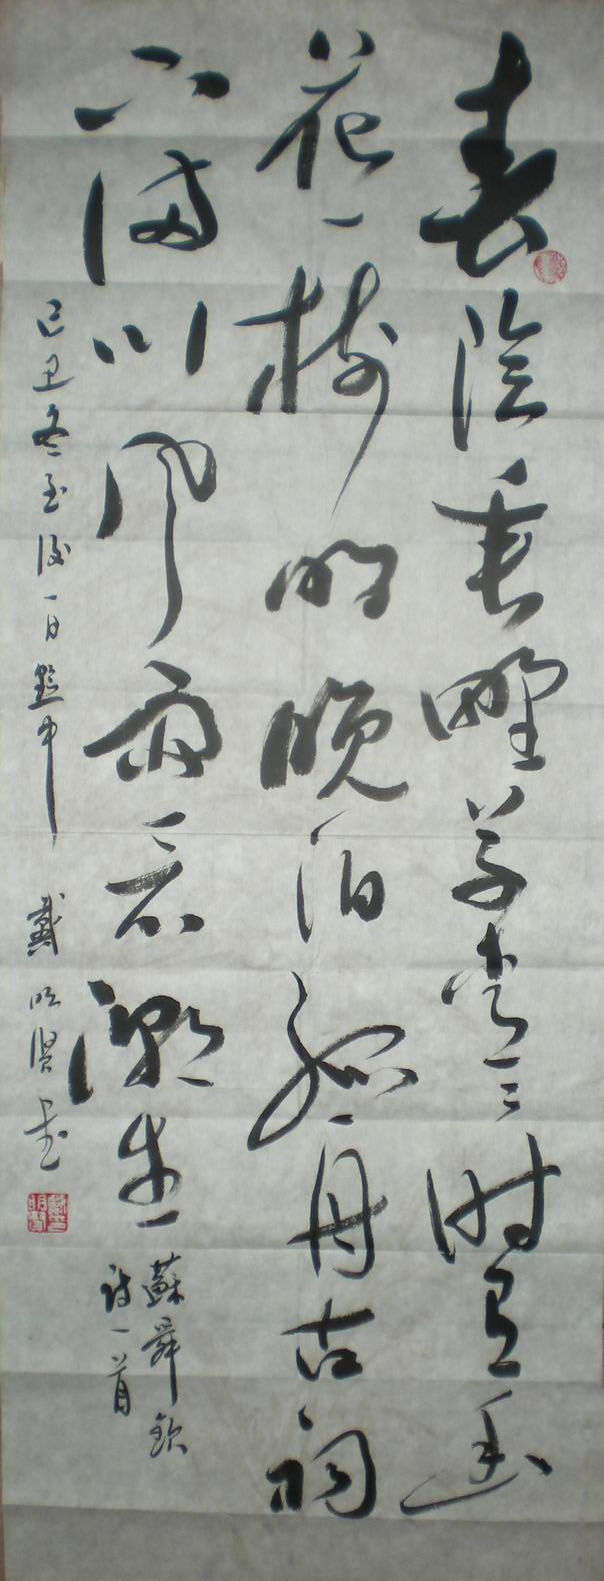 春陰垂野草青〻時有幽
花一樹明晚泊孤舟古祠
下滿川風雨看潮生
蘇舜欽
詩一首
己丑冬至後一日黔中 戴明賢書